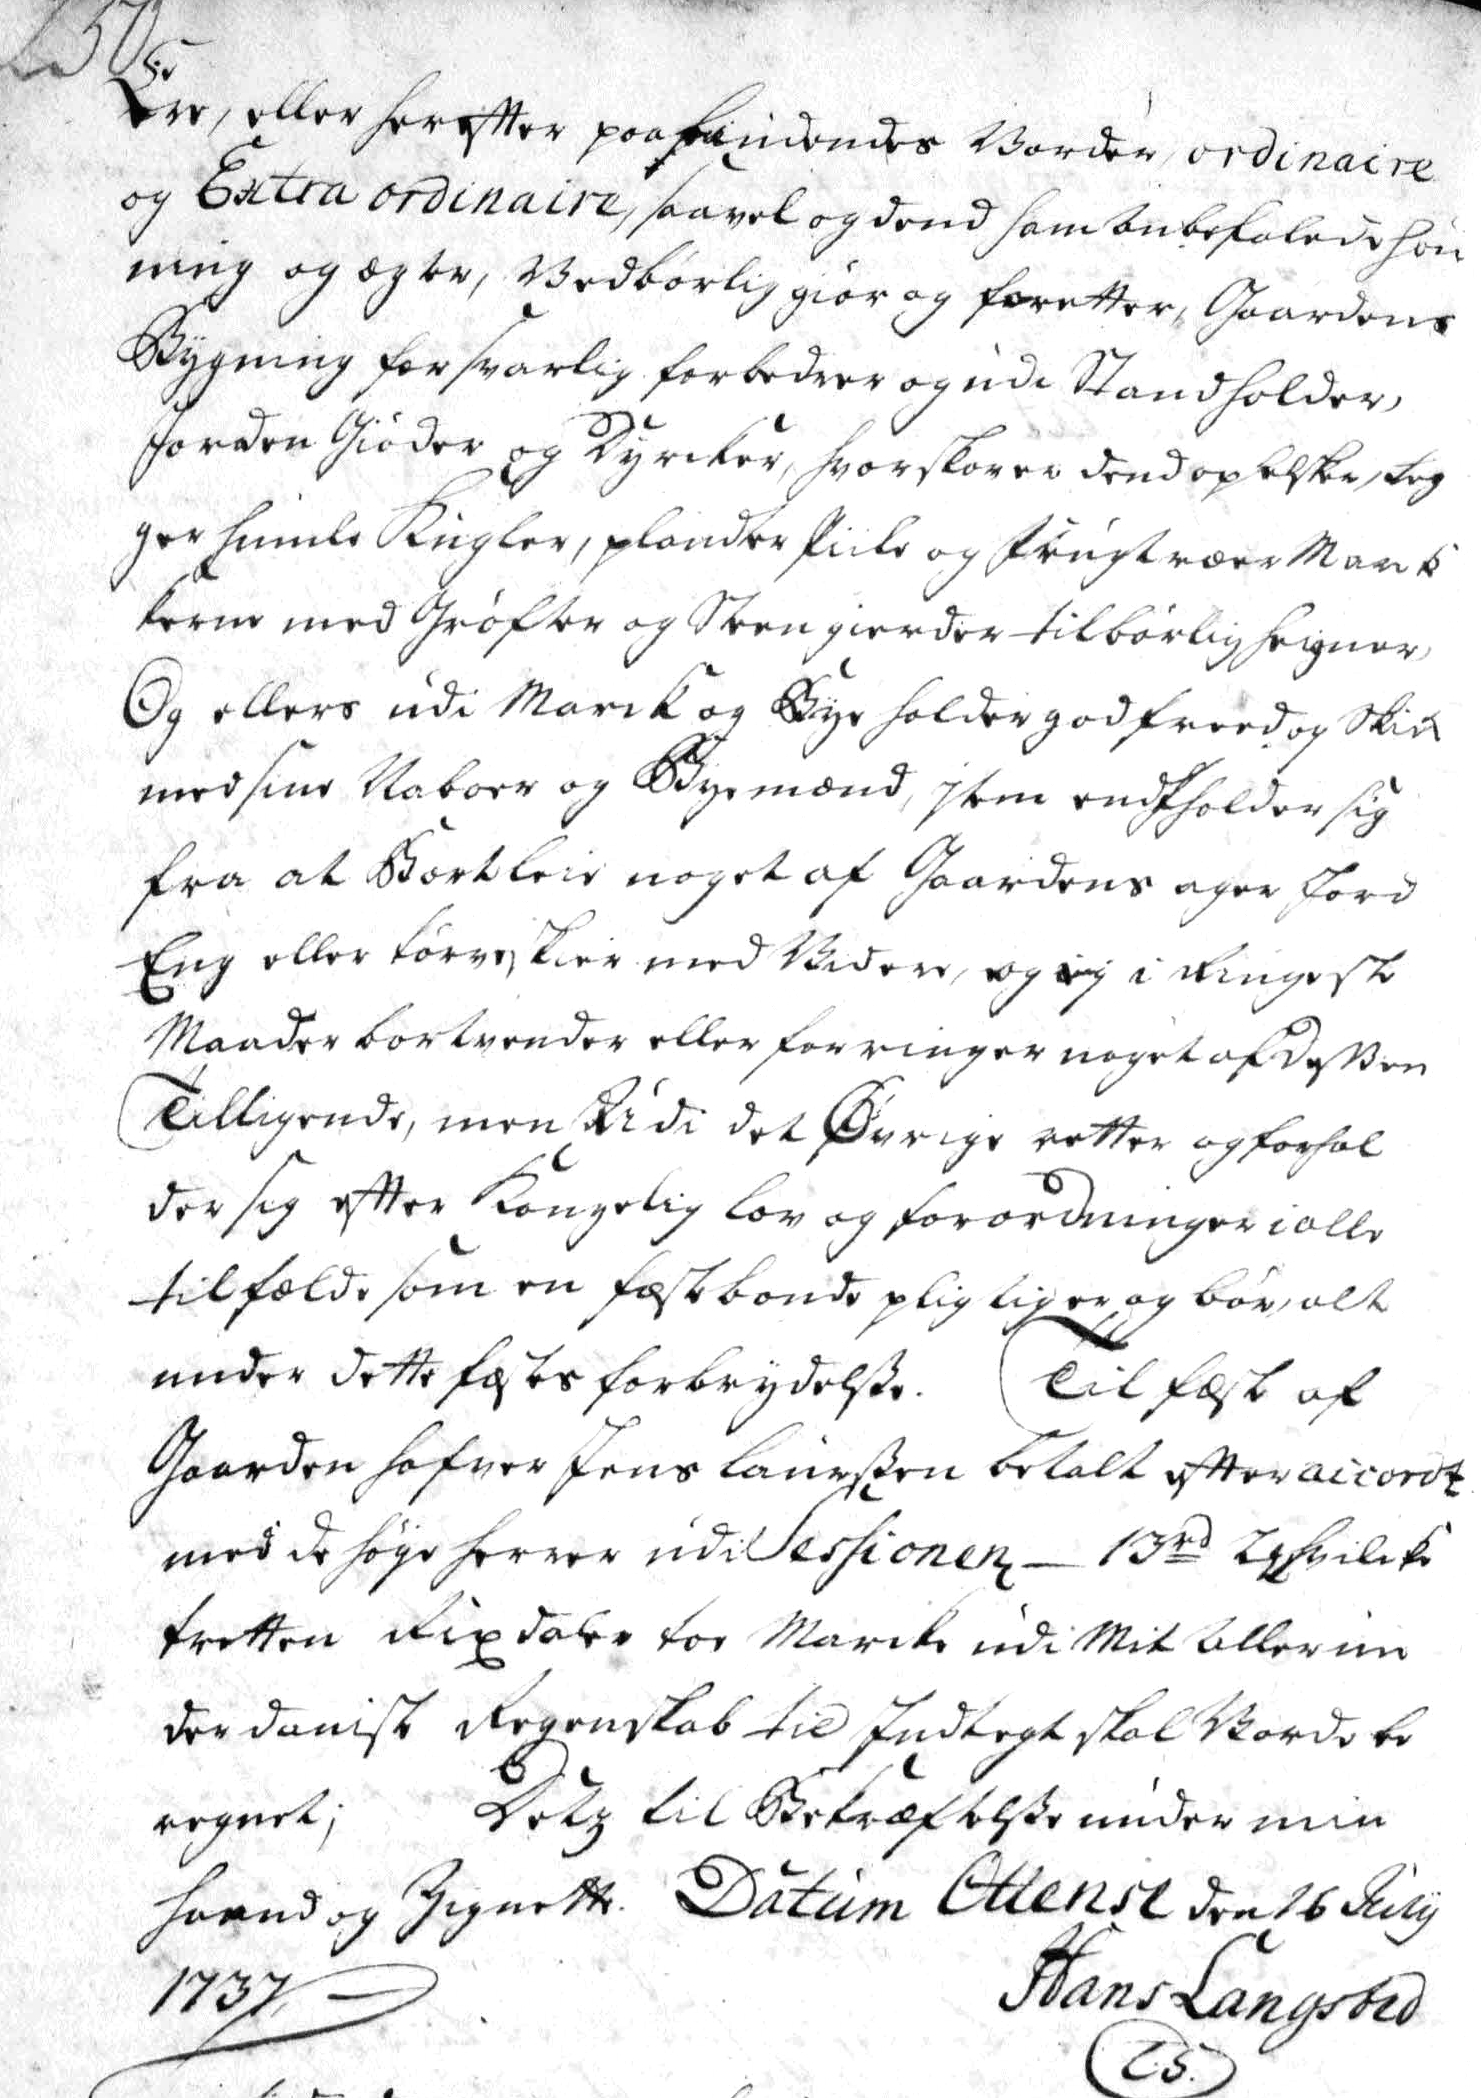 Ere, eller herefter paafindendes Vorder, ordinaire
og Extra ordinaire, saavel og dend som anbefalede Høu
ning og ægter, Vedbørlig giør og forretter, Gaardens
Bygning forsvarlig forbedrer og udi Stand holder,
Jorden Giøder og Dyrcker, hvor skover dend opelsker, leg
ger Humle Kugler, planter Piile og Frugttræer Marck
kerne med Grøfter og Steengierder tilbørlig heigner,
Og ellers udi Marck og Bye holder god freed og Skick
med sine Naboer og Byemænd, item endtholder sig
fra at Bortleie noget af Gaardens ager Jord
Eng eller tørveskier med Videre, og ej i Ringeste
Maader bortvender eller forringer noget af dessen
Tilligende, men Udi det Øvrige retter og forhol
der sig efter Kongelig lov og forordninger i alle
tilfælde som en fæstebonde pligtig er og bør, alt
under dette fæstes forbrydelsse. Til fæste af
Gaarden hafver Jens Laurssen betalt efter accordt
med de høye Herrer udi Sessionen – 13 rd 2 mk hvilcke
tretten Rixdaler toe Marcke udi Mit Allerun
derdanigste Regenskab til Indtegt skal Vorde be
regnet; Detz til Bekræftelsse under min
Haand og Zignette. Datum Ottense den 16 July
1737
Hans Langsted
L.S.